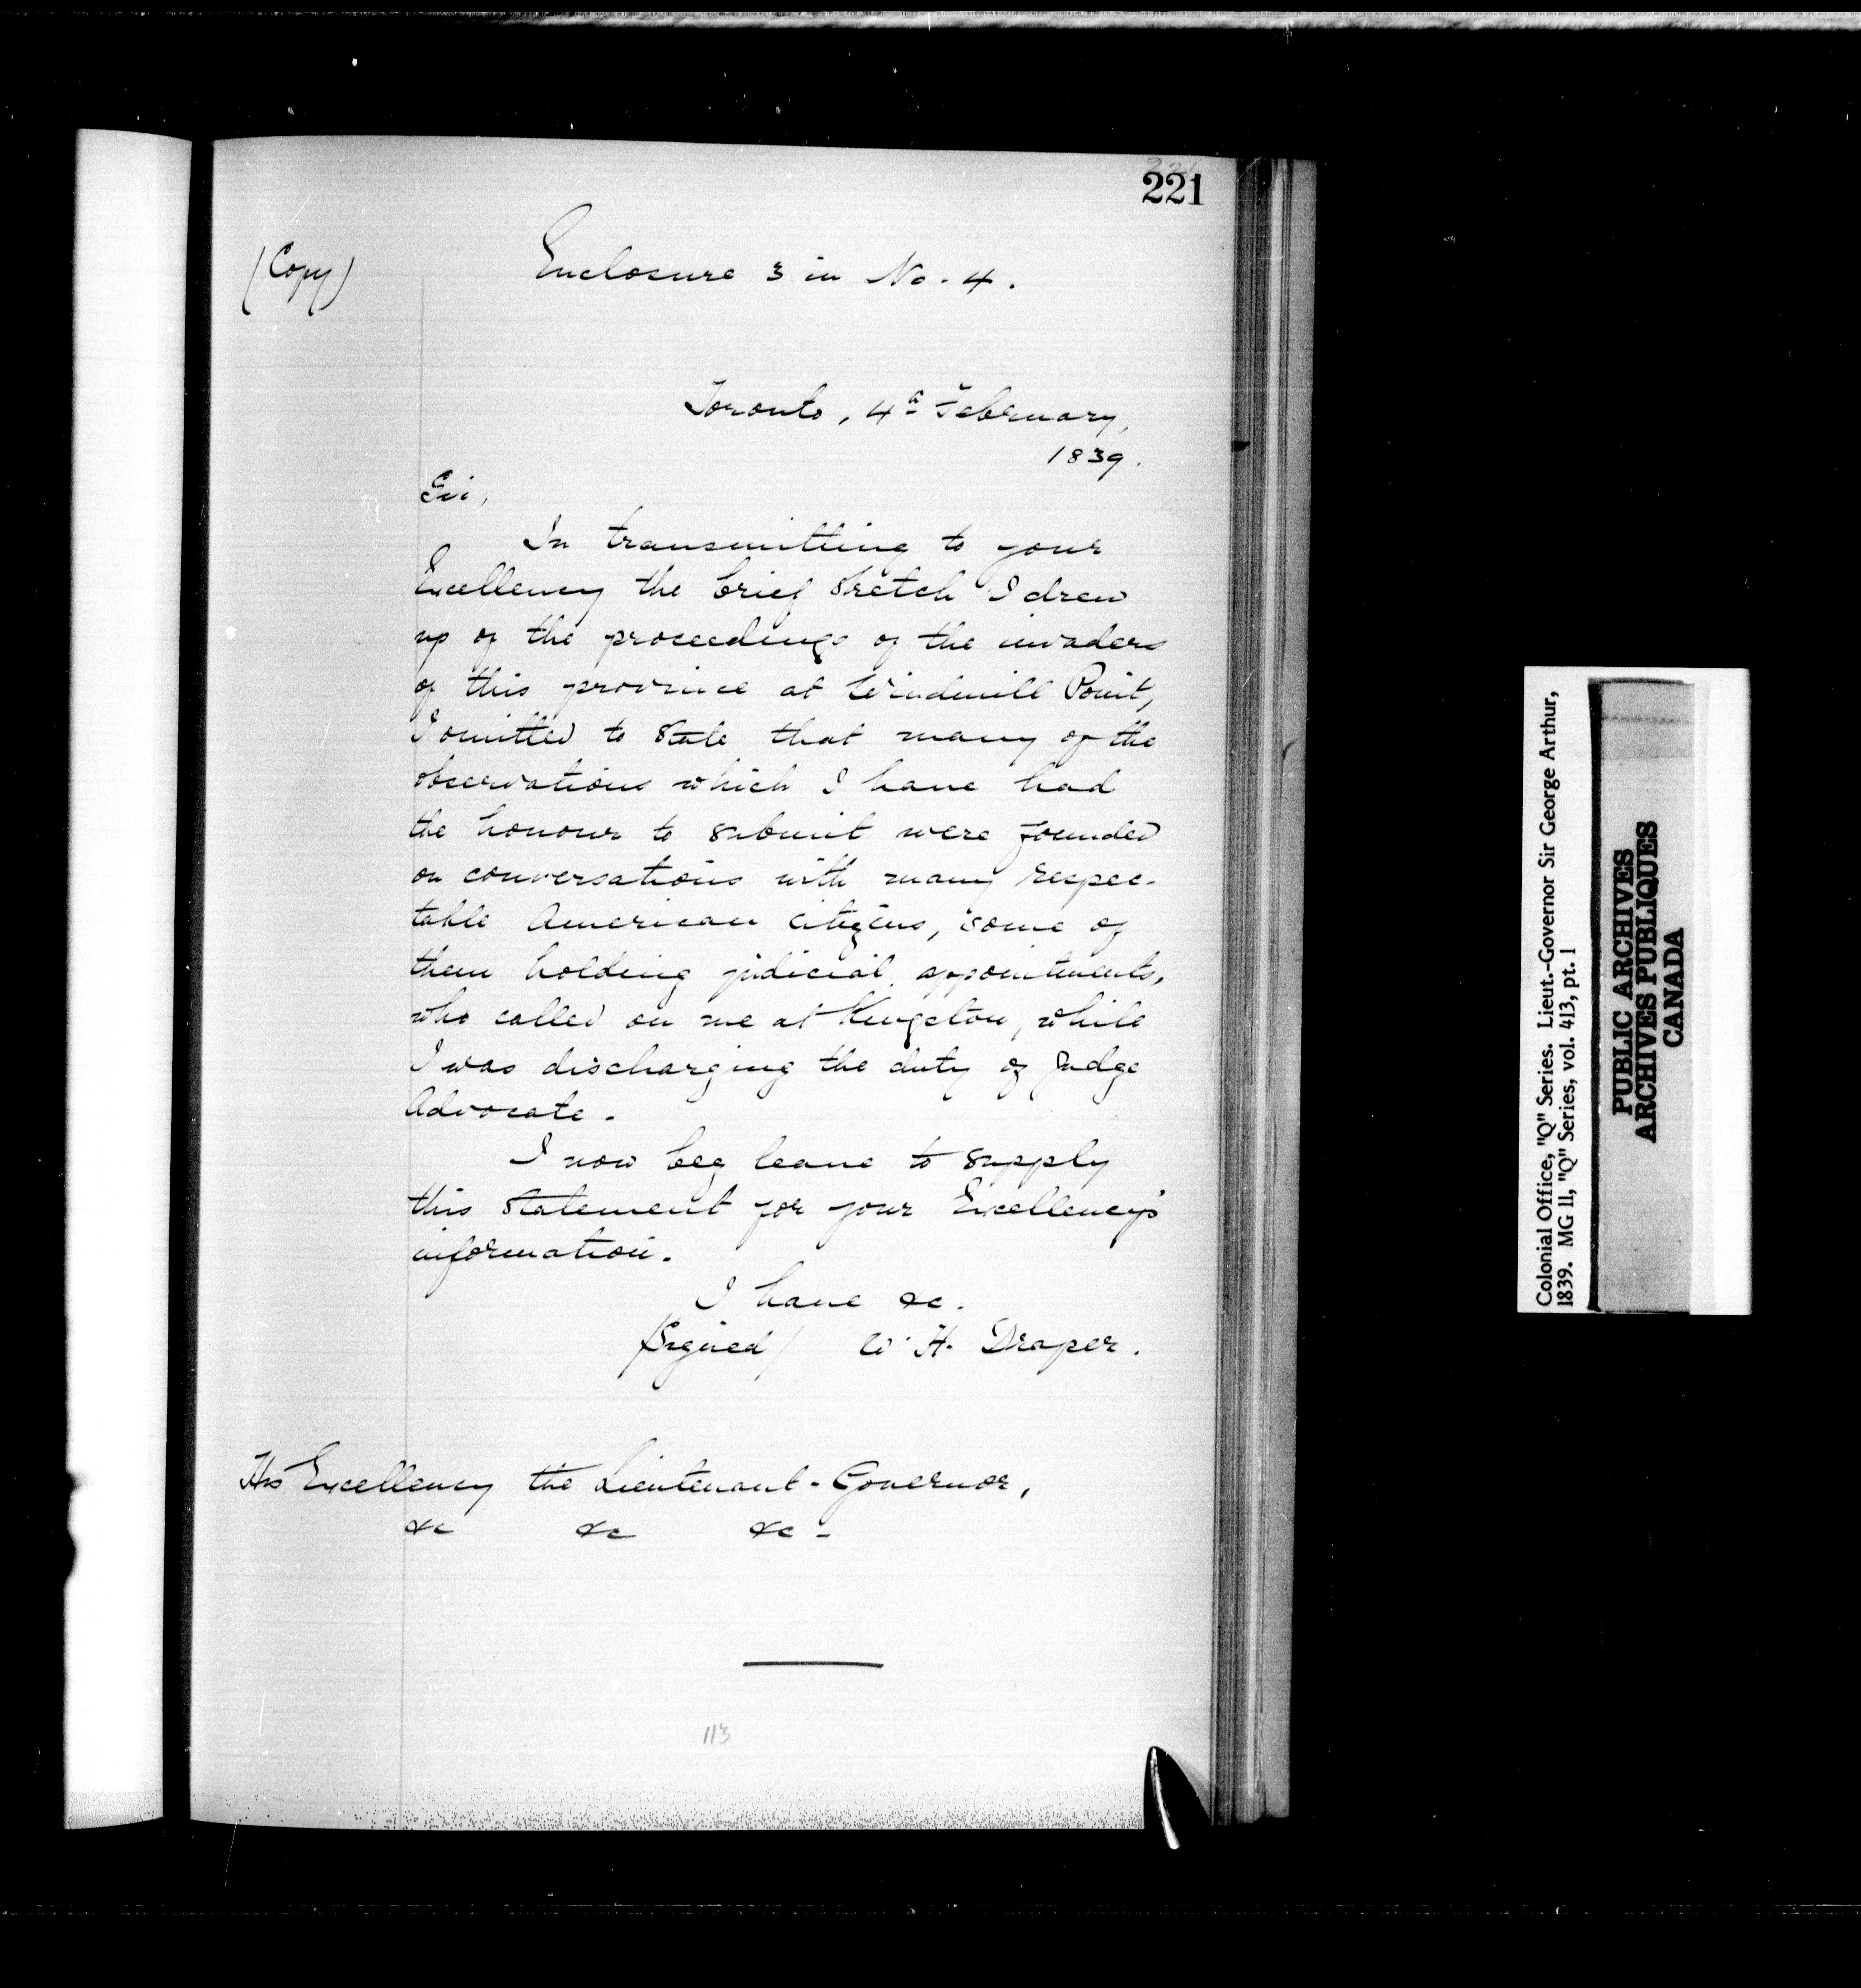 221
(Copy)
Enclosure 3 in No. 4.
Toronto, 4th February,
1839.
Sir,
In transmitting to your
Excellency the brief sketch I drew
up of the proceedings of the invaders
of this province at Windmill Point,
I omitted to state that many of the
observations which I have had
the honour to submit were founded
on conversations with many respec-
table American citizens, some of
them holding judicial appointments,
who called on me at Kingston, while
I was discharging the duty of Judge
Advocate.
I now beg leave to supply
this statement for your Excellency's
information.
I have &c.
(Signed) W. H. Draper.
His Excellency the Lieutenant-Governor,
&c &c &c-
113
Colonial Office, "Q" Series. Lieut.-Governor Sir George Arthur,
1839. MG 11, "Q" Series, vol. 413, pt. 1
PUBLIC ARCHIVES
ARCHIVES PUBLIQUES
CANADA